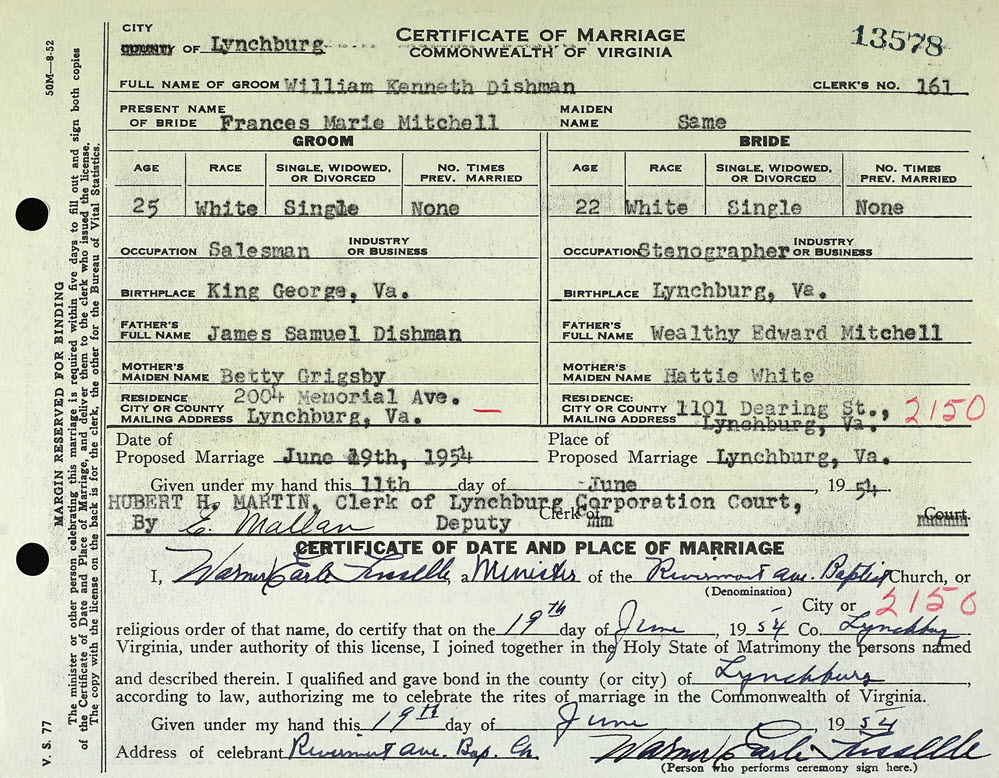 CITY
COUNTY OF Lynchburg
CERTIFICATE OF MARRIAGE
COMMONWEALTH OF VIRGINIA
13578
FULL NAME OF GROOM William Kenneth Dishman CLERK'S NO. 161
PRESENT NAME OF BRIDE Frances Marie Mitchell MAIDEN NAME Same
GROOM BRIDE
AGE RACE SINGLE, WIDOWED, OR DIVORCED NO. TIMES PREV. MARRIED AGE RACE SINGLE, WIDOWED, OR DIVORCED NO. TIMES PREV. MARRIED
25 White Single None 22 White Single None
OCCUPATION Salesman INDUSTRY OR BUSINESS OCCUPATION Stenographer INDUSTRY OR BUSINESS
BIRTHPLACE King George, Va. BIRTHPLACE Lynchburg, Va.
FATHER'S FULL NAME James Samuel Dishman FATHER'S FULL NAME Wealthy Edward Mitchell
MOTHER'S MAIDEN NAME Betty Grigsby MOTHER'S MAIDEN NAME Hattie White
RESIDENCE CITY OR COUNTY MAILING ADDRESS 2004 Memorial Ave. Lynchburg, Va. — RESIDENCE: CITY OR COUNTY MAILING ADDRESS 1101 Dearing St., Lynchburg, Va. 2150
Date of Proposed Marriage June 19th, 1954 Place of Proposed Marriage Lynchburg, Va.
Given under my hand this 11th day of June, 1954
HUBERT H. MARTIN, Clerk of Lynchburg Corporation Court,
By E. Mallan Deputy Clerk of Court
CERTIFICATE OF DATE AND PLACE OF MARRIAGE
I, Warner Earle, a Minister of the Rivermont Ave. Baptist Church, or
(Denomination)
City or 2150
religious order of that name, do certify that on the 19th day of June, 1954 Co. Lynchburg
Virginia, under authority of this license, I joined together in the Holy State of Matrimony the persons named
and described therein. I qualified and gave bond in the county (or city) of Lynchburg,
according to law, authorizing me to celebrate the rites of marriage in the Commonwealth of Virginia.
Given under my hand this 19th day of June 1954
Address of celebrant Rivermont Ave. Bap. Ch. Warner Earle
(Person who performs ceremony sign here.)
50M—8-52
MARGIN RESERVED FOR BINDING
The minister or other person celebrating this marriage is required within five days to fill out and sign both copies
of the Certificate of Date and Place of Marriage, and deliver them to the clerk who issued the license.
The copy with the license on the back is for the clerk, the other for the Bureau of Vital Statistics.
V. S. 77